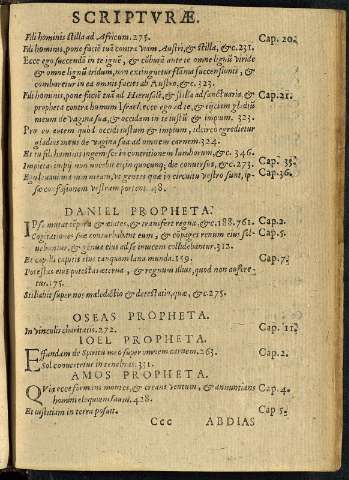 SCRIPTVRÆ.
Fili hominis stilla ad Africum. 275. Cap. 20.
Fili hominis, pone faciē tuā contra viam Austri, & stilla, &c. 231.
Ecce ego succendā in te ignē, & cōburā ante te omne lignū viride
& omne lignū aridum, non extinguetur flāma succensionis, &
comburetur in ea omnis facies ab Austro, &c. 323.
Fili hominis, pone faciē tuā ad Hierusalē, & stilla ad sanctuaria & Cap. 21.
propheta contra humum Israel, ecce ego ad te, & eiiciam gladiū
meum de vagina sua, & occidam in te iustū & impium. 323.
Pro eo autem quod occidi iustum & impium, idcirco egredietur
gladius meus de vagina sua ad omnem carnem 324.
Et tu fili hominis ingemisce in contritione lumborum, &c. 346.
Impietas impij non nocebit ei in quocunq; die conuersus, &c. 273. Cap. 33.
Ignominiam vestram portent. 48. Cap. 36.
DANIEL PROPHETA.
IPse mutat tempora & ætates, & transfert regna, &c. 188. 761. Cap. 2.
Cogitationes suæ conturbabant eum, & cōpages renum eius sol- Cap. 5.
uebantur, & genua eius ad se inuicem collidebantur. 312.
Et capilli capitis eius tanquam lana munda. 159. Cap. 7.
Potestas eius potestas æterna, & regnum illius, quod non aufere-
tur. 175.
Stillabit super nos maledictio & detestatio, quæ, &c 275.
OSEAS PROPHETA.
In vinculis charitatis. 272. Cap. 11.
IOEL PROPHETA.
EFfundam de Spiritu meo super omnem carnem. 263. Cap. 2.
Sol conuertetur in tenebras. 331.
AMOS PROPHETA.
QVia ecce formans montes, & creans ventum, & annuntians Cap. 4.
homini eloquium suum. 428.
Et iustitiam in terra posuit. Cap 5.
Ccc ABDIAS